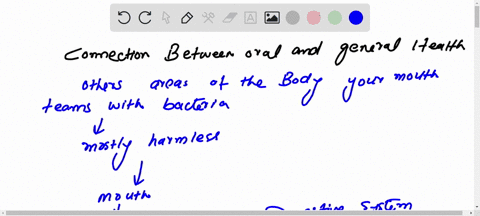 Connection Between oral and general Health
others areas of the Body your mouth
teams with bacteria
mostly harmless
mouth
System